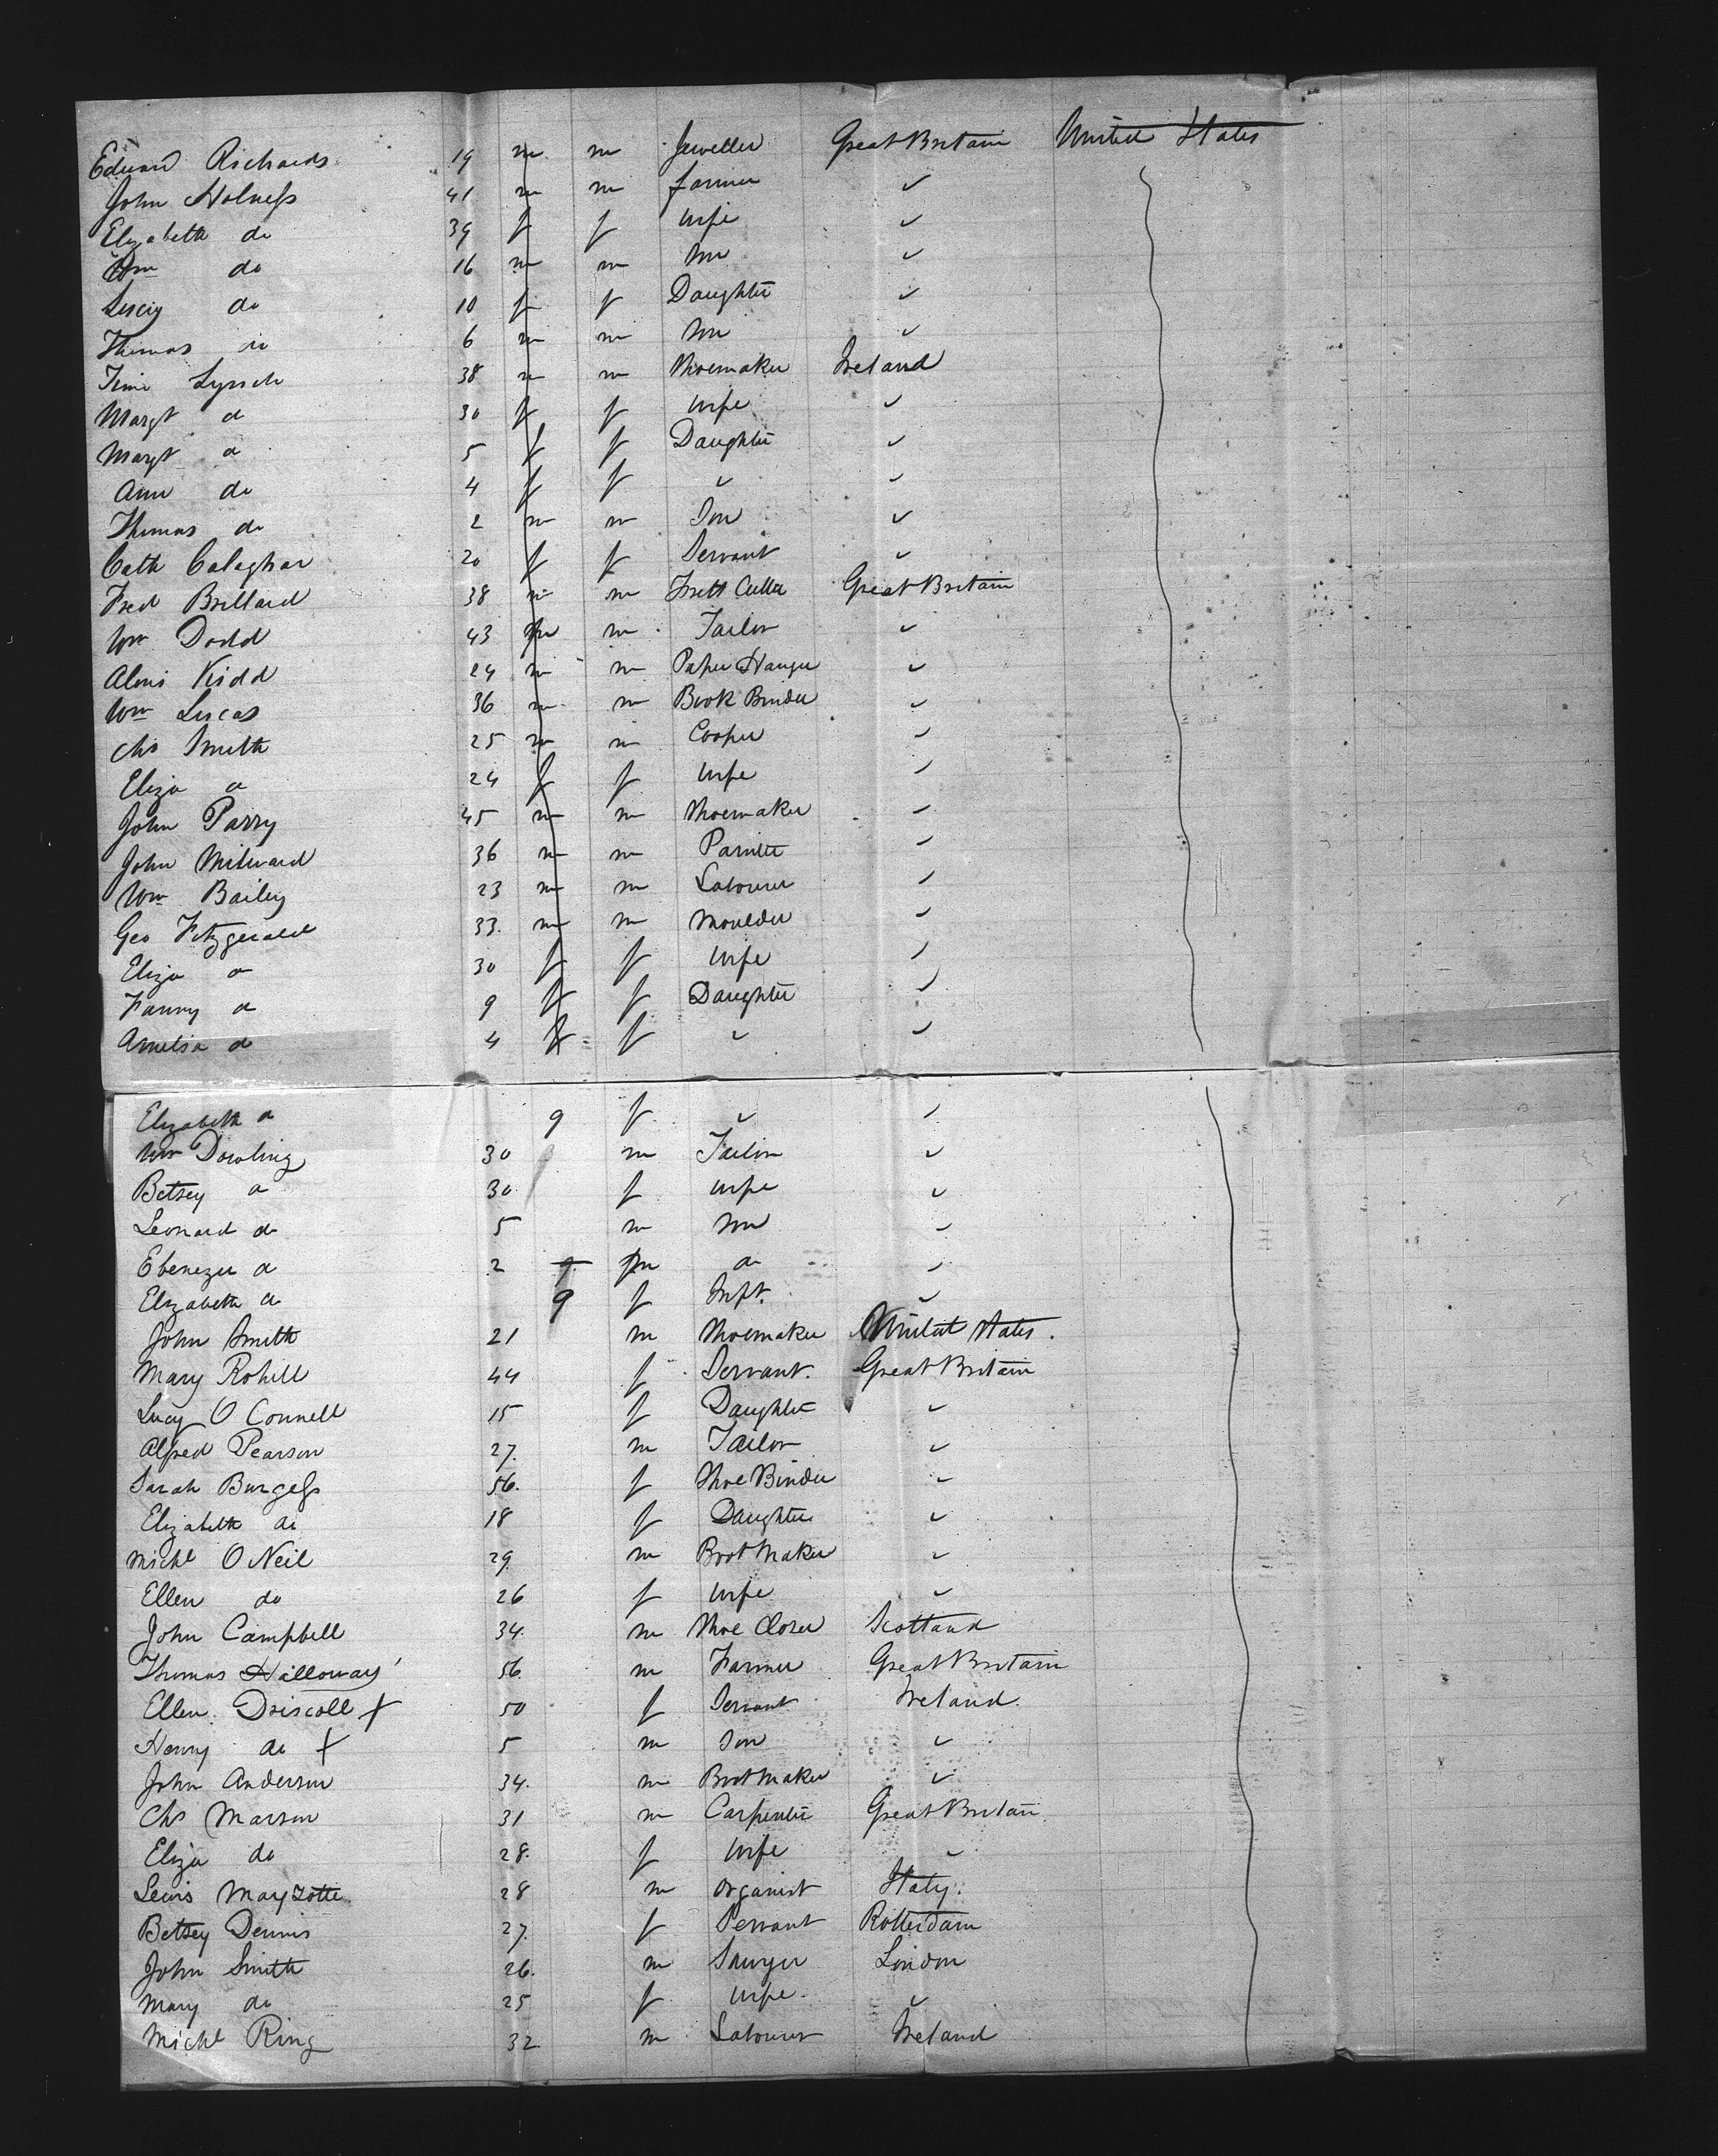 Edward Richards 19 m m Jeweller Great Britain United States
John Holness 41 m m farmer ✓
Elizabeth do 39 f f wife ✓
Wm do 16 m m son ✓
Lucy do 10 f f Daughter ✓
Thomas do 6 m m son ✓
Lynch 38 m m Shoemaker Ireland
Margt do 30 f f wife ✓
Margt do 5 f f Daughter ✓
Ann do 4 f f ✓ ✓
Thomas do 2 m m Son ✓
Cath Calaghar 20 f f Servant ✓
Fred Brillard 38 m m Frett Cutter Great Britain
Wm Dodd 43 m m Tailor ✓
Kidd 24 m m Paper Hanger ✓
Wm Lucas 36 m m Book Binder ✓
Chs Smith 25 m m Cooper ✓
Eliza do 24 f f wife ✓
John Parry 45 m m Shoemaker ✓
John Milward 36 m m Painter ✓
Wm Bailey 23 m m Labourer ✓
Geo Fitzgerald 33. m m Moulder ✓
Eliza do 30 f f wife ✓
Fanny do 9 f f Daughter ✓
Amelia do 4 f f ✓ ✓
Elizabeth do 9 f ✓ ✓
Wm Dowling 30 m Tailor ✓
Betsey do 30 f wife ✓
Leonard do 5 m son ✓
Ebenezer do 2 9 m do ✓
Elizabeth do 9 f Inft. ✓
John Smith 21 m Shoemaker United States.
Mary Rohill 44 f Servant. Great Britain
Lucy O Connell 15 f Daughter ✓
Alfred Pearson 27. m Tailor ✓
Sarah Burgess 56. f Shoe Binder ✓
Elizabeth do 18 f Daughter ✓
Michl O Neil 29. m Boot Maker ✓
Ellen do 26 f wife ✓
John Campbell 34. m Shoe Closer Scotland
Thomas Halloway 56. m Farmer Great Britain
Ellen Driscoll + 50 f Servant Ireland
Henry do + 5 m Son ✓
John Anderson 34. m Bootmaker ✓
Chs Marson 31 m Carpenter Great Britain
Eliza do 28. f wife ✓
Lewis Mayzotte 28 m organist Italy.
Betsey Dennis 27. f Servant Rotterdam
John Smith 26. m Sawyer London
Mary do 25 f wife ✓
Michl Ring 32 m Labourer Ireland